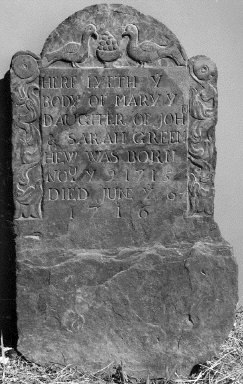 HERE LYETH Y
BODY OF MARY Y
DAUGHTER OF JOH
& SARAH GREEN
HEW WAS BORN
NOV Y 9 171
DIED JUNE Y 6
1716